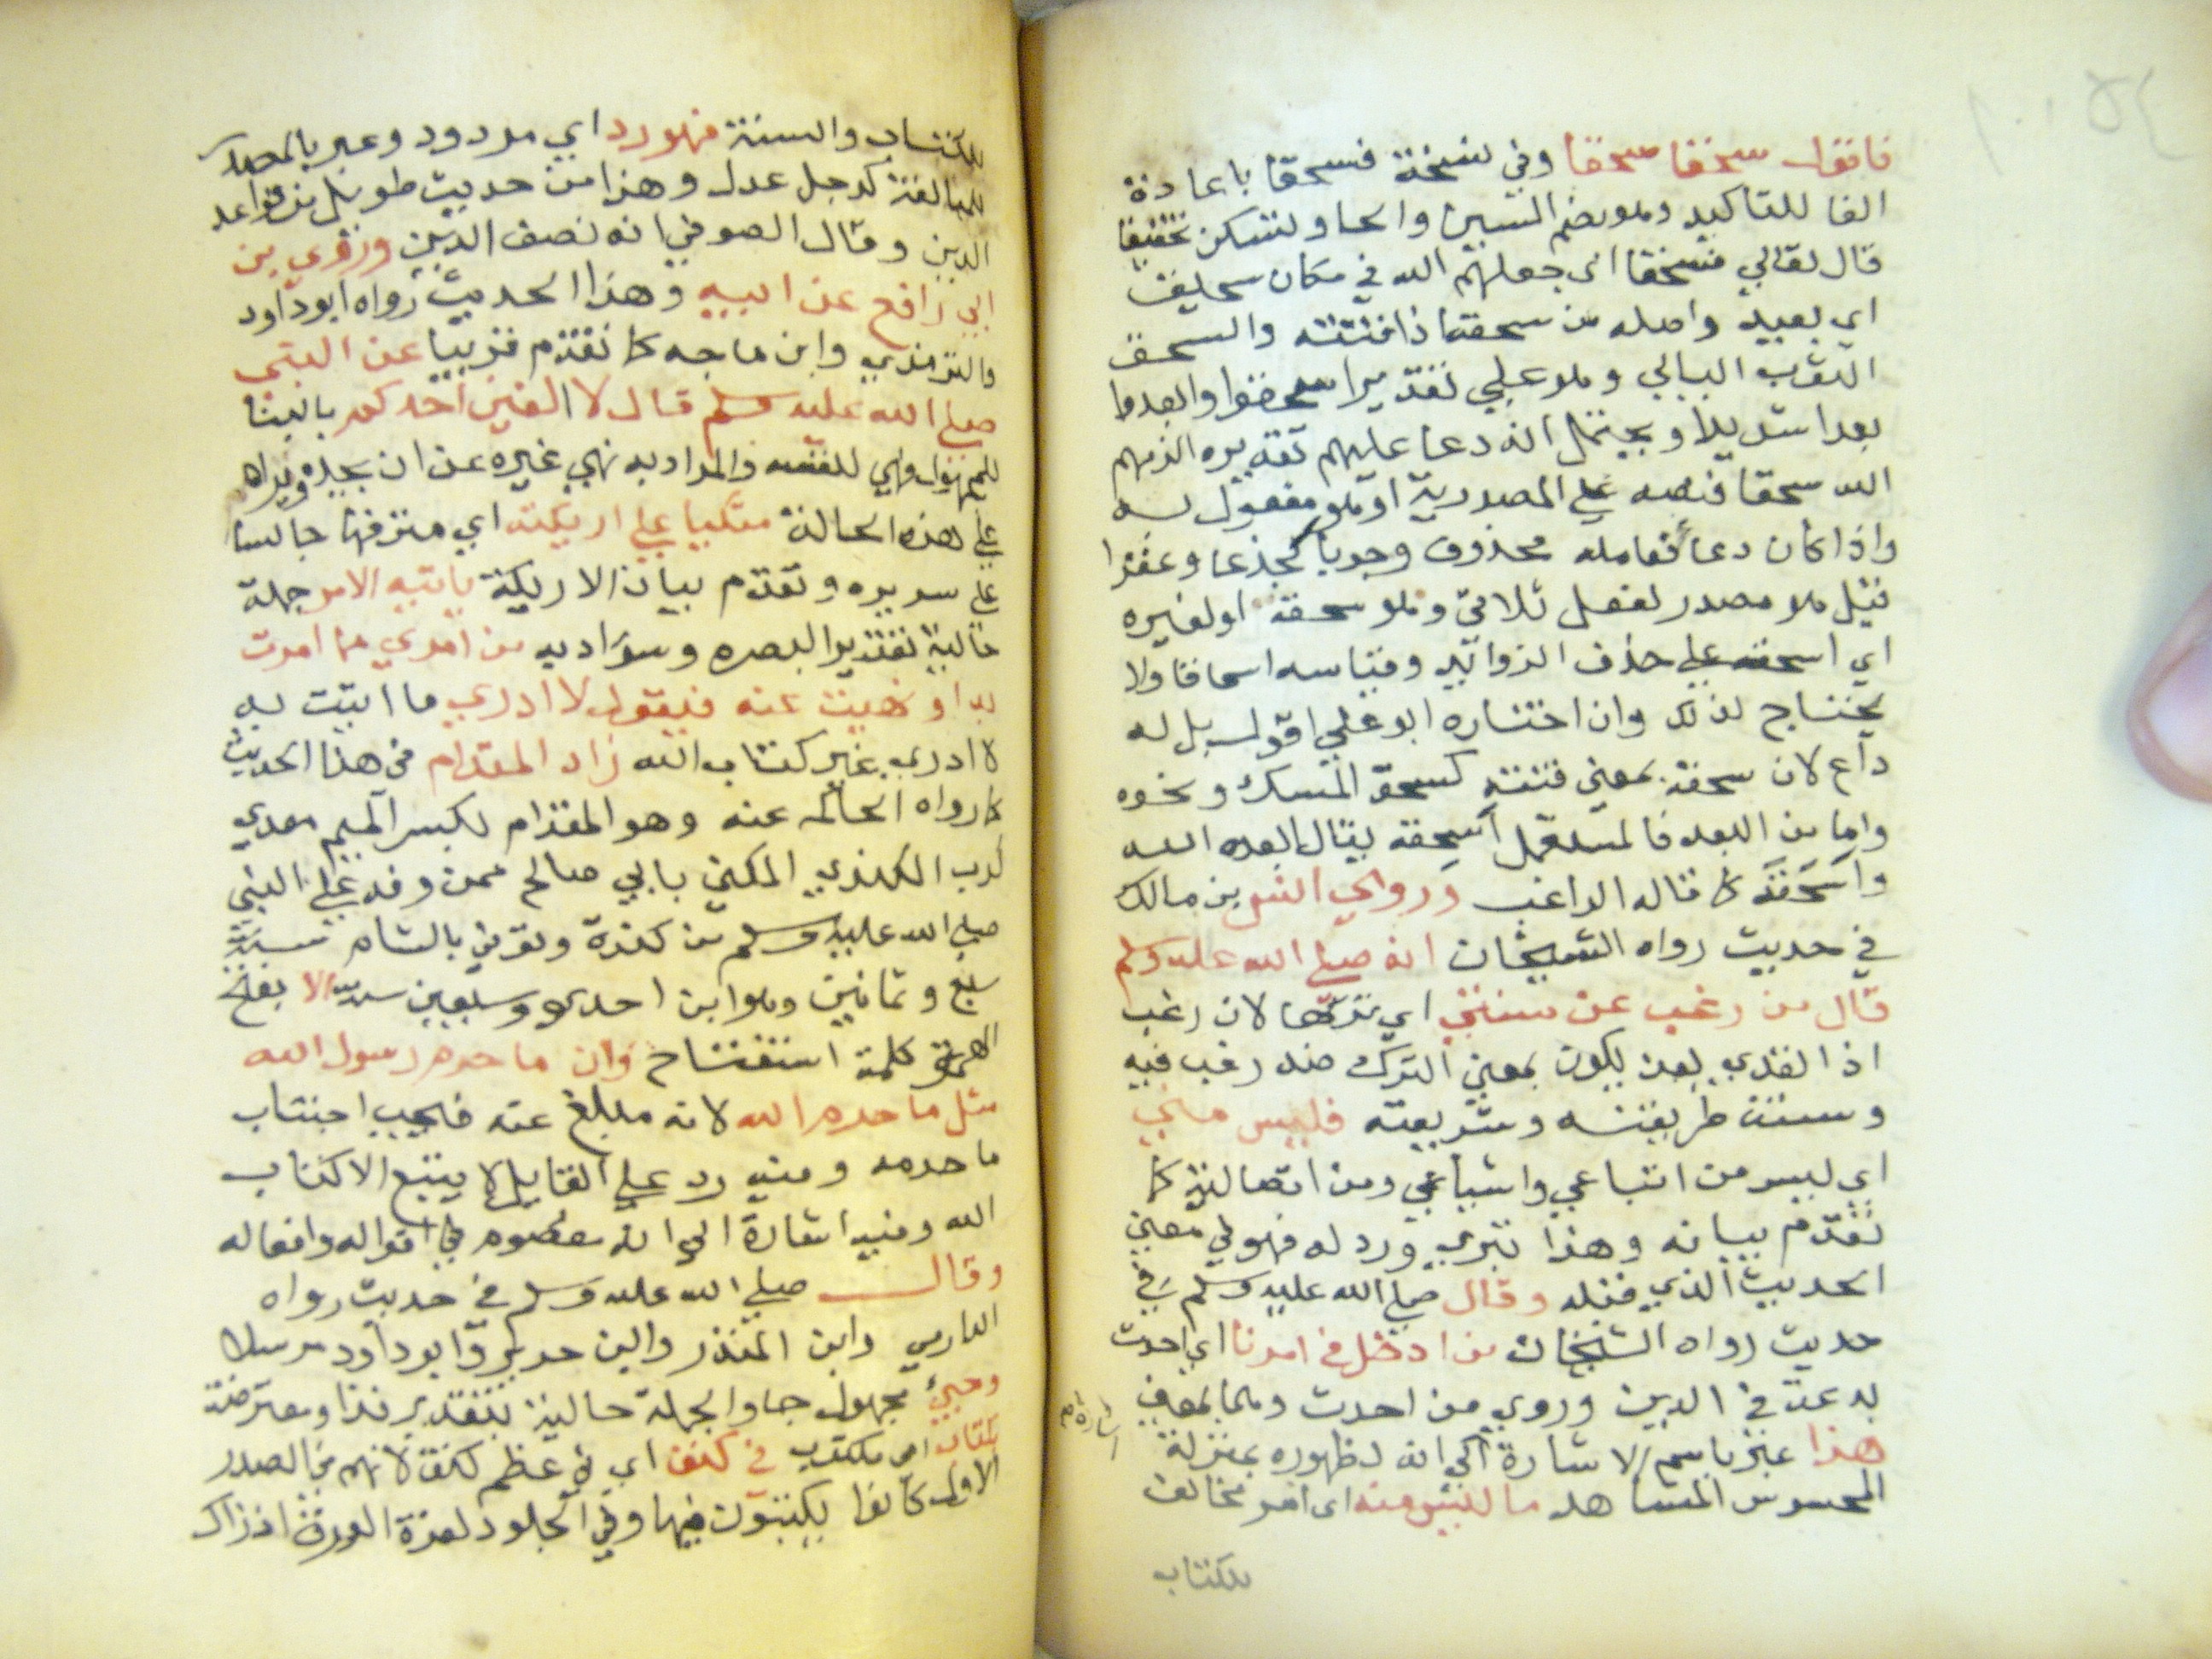 فاقول سحقا سحقا وفي نسخة فسحقا باعادة
الفا للتاكيد وهو بضم السين والحا وتسكن تخفيفا
قال تعالي فسحقا اي جعلهم الله في مكان سحيق
اي بعيد واصله من سحقه اذا فتته والسحق
الثوب البالي وهو علي تقدير اسحقوا وابعدوا
بعدا شديدا ويحتمل انه دعا عليهم تقديره الزمهم
الله سحقا فنصبه علي المصدرية او هو مفعول به
واذا كان دعا فعامله محذوف وجوبا كجدعا وعقرا
قيل هو مصدر لفعل ثلاثي وهو سحقه او لغيره
اي اسحقه علي حذف الزوائد وقياسه اسحاقا ولا
يحتاج لذلك وان اختاره ابو علي اقول بل له
داع لان سحقه بمعني فتته كسحق المسك ونحوه
واما من البعد فالمستعمل اسحقه يقال ابعده الله
واسحقه كما قاله الراغب وروي انس بن مالك
في حديث رواه الشيخان انه صلي الله عليه وسلم
قال من رغب عن سنتي اي تركها لان رغب
اذا تعدي بعن يكون بمعني الترك ضد رغب فيه
وسنته طريقته وشريعته فليس مني
اي ليس من اتباعي واشياعي ومن اتصالية كما
تقدم بيانه وهذا تبري ورد له فهو في معني
الحديث الذي قبله وقال صلي الله عليه وسلم في
حديث رواه الشيخان من ادخل في امرنا اي احدث
بدعة في الدين وروي من احدث وهما بمعني
هذا عبر باسم الاشارة اشارة الي انه لظهوره بمنزلة
المحسوس المشاهد ما ليس منه اي امر مخالف
للكتاب
للكتاب والسنة فهو رد اي مردود وعبر بالمصدر
للمبالغة كرجل عدل وهذا من حديث طويل من قواعد
الدين وقال الصوفي انه نصف الدين وروي بن
ابي رافع عن ابيه وهذا الحديث رواه ابو داود
والترمذي وابن ماجه كما تقدم قريبا عن النبي
صلي الله عليه وسلم قال لا الفين احدكم بالبنا
للمجهول ونهي لنفسه والمراد به نهي غيره عن ان يجده ويراه
علي هذه الحالة متكيا علي اريكته اي مترفها جالسا
علي سريره وتقدم بيان الاريكة ياتيه الامر جملة
حالية تقديرا لبصره وسواديه من امري مما امرت
به او نهيت عنه فيقول لا ادري ما اتيت به
لا ادري غير كتاب الله زاد المقدام في هذا الحديث
كما رواه الحاكم عنه وهو المقدام بكسر الميم معدي
كرب الكندي المكني بابي صالح ممن وفد علي النبي
صلي الله عليه وسلم من كندة وتوفي بالشام سنة
سبع وثمانين وهو ابن احدي وسبعين سنة الا بفتح
الهمزة كلمة استفتاح وان ما حرم رسول الله
مثل ما حرم الله لانه مبلغ عنه فيجب اجتناب
ما حرمه وفيه رد علي القايل لا يتبع الا كتاب
الله وفيه اشارة الي انه معصوم في اقواله وافعاله
وقال صلي الله عليه وسلم في حديث رواه
الدارمي وابن المنذر وابن جرير وابو داود مرسلا
وجيئ مجهول جا والجملة حالية بتقدير قد او معترضة
بكتاب اي مكتوب في كتف اي في عظم كتف لانهم في الصدر
الاول كانوا يكتبون فيها وفي الجلود لعزة الورق اذ ذاك